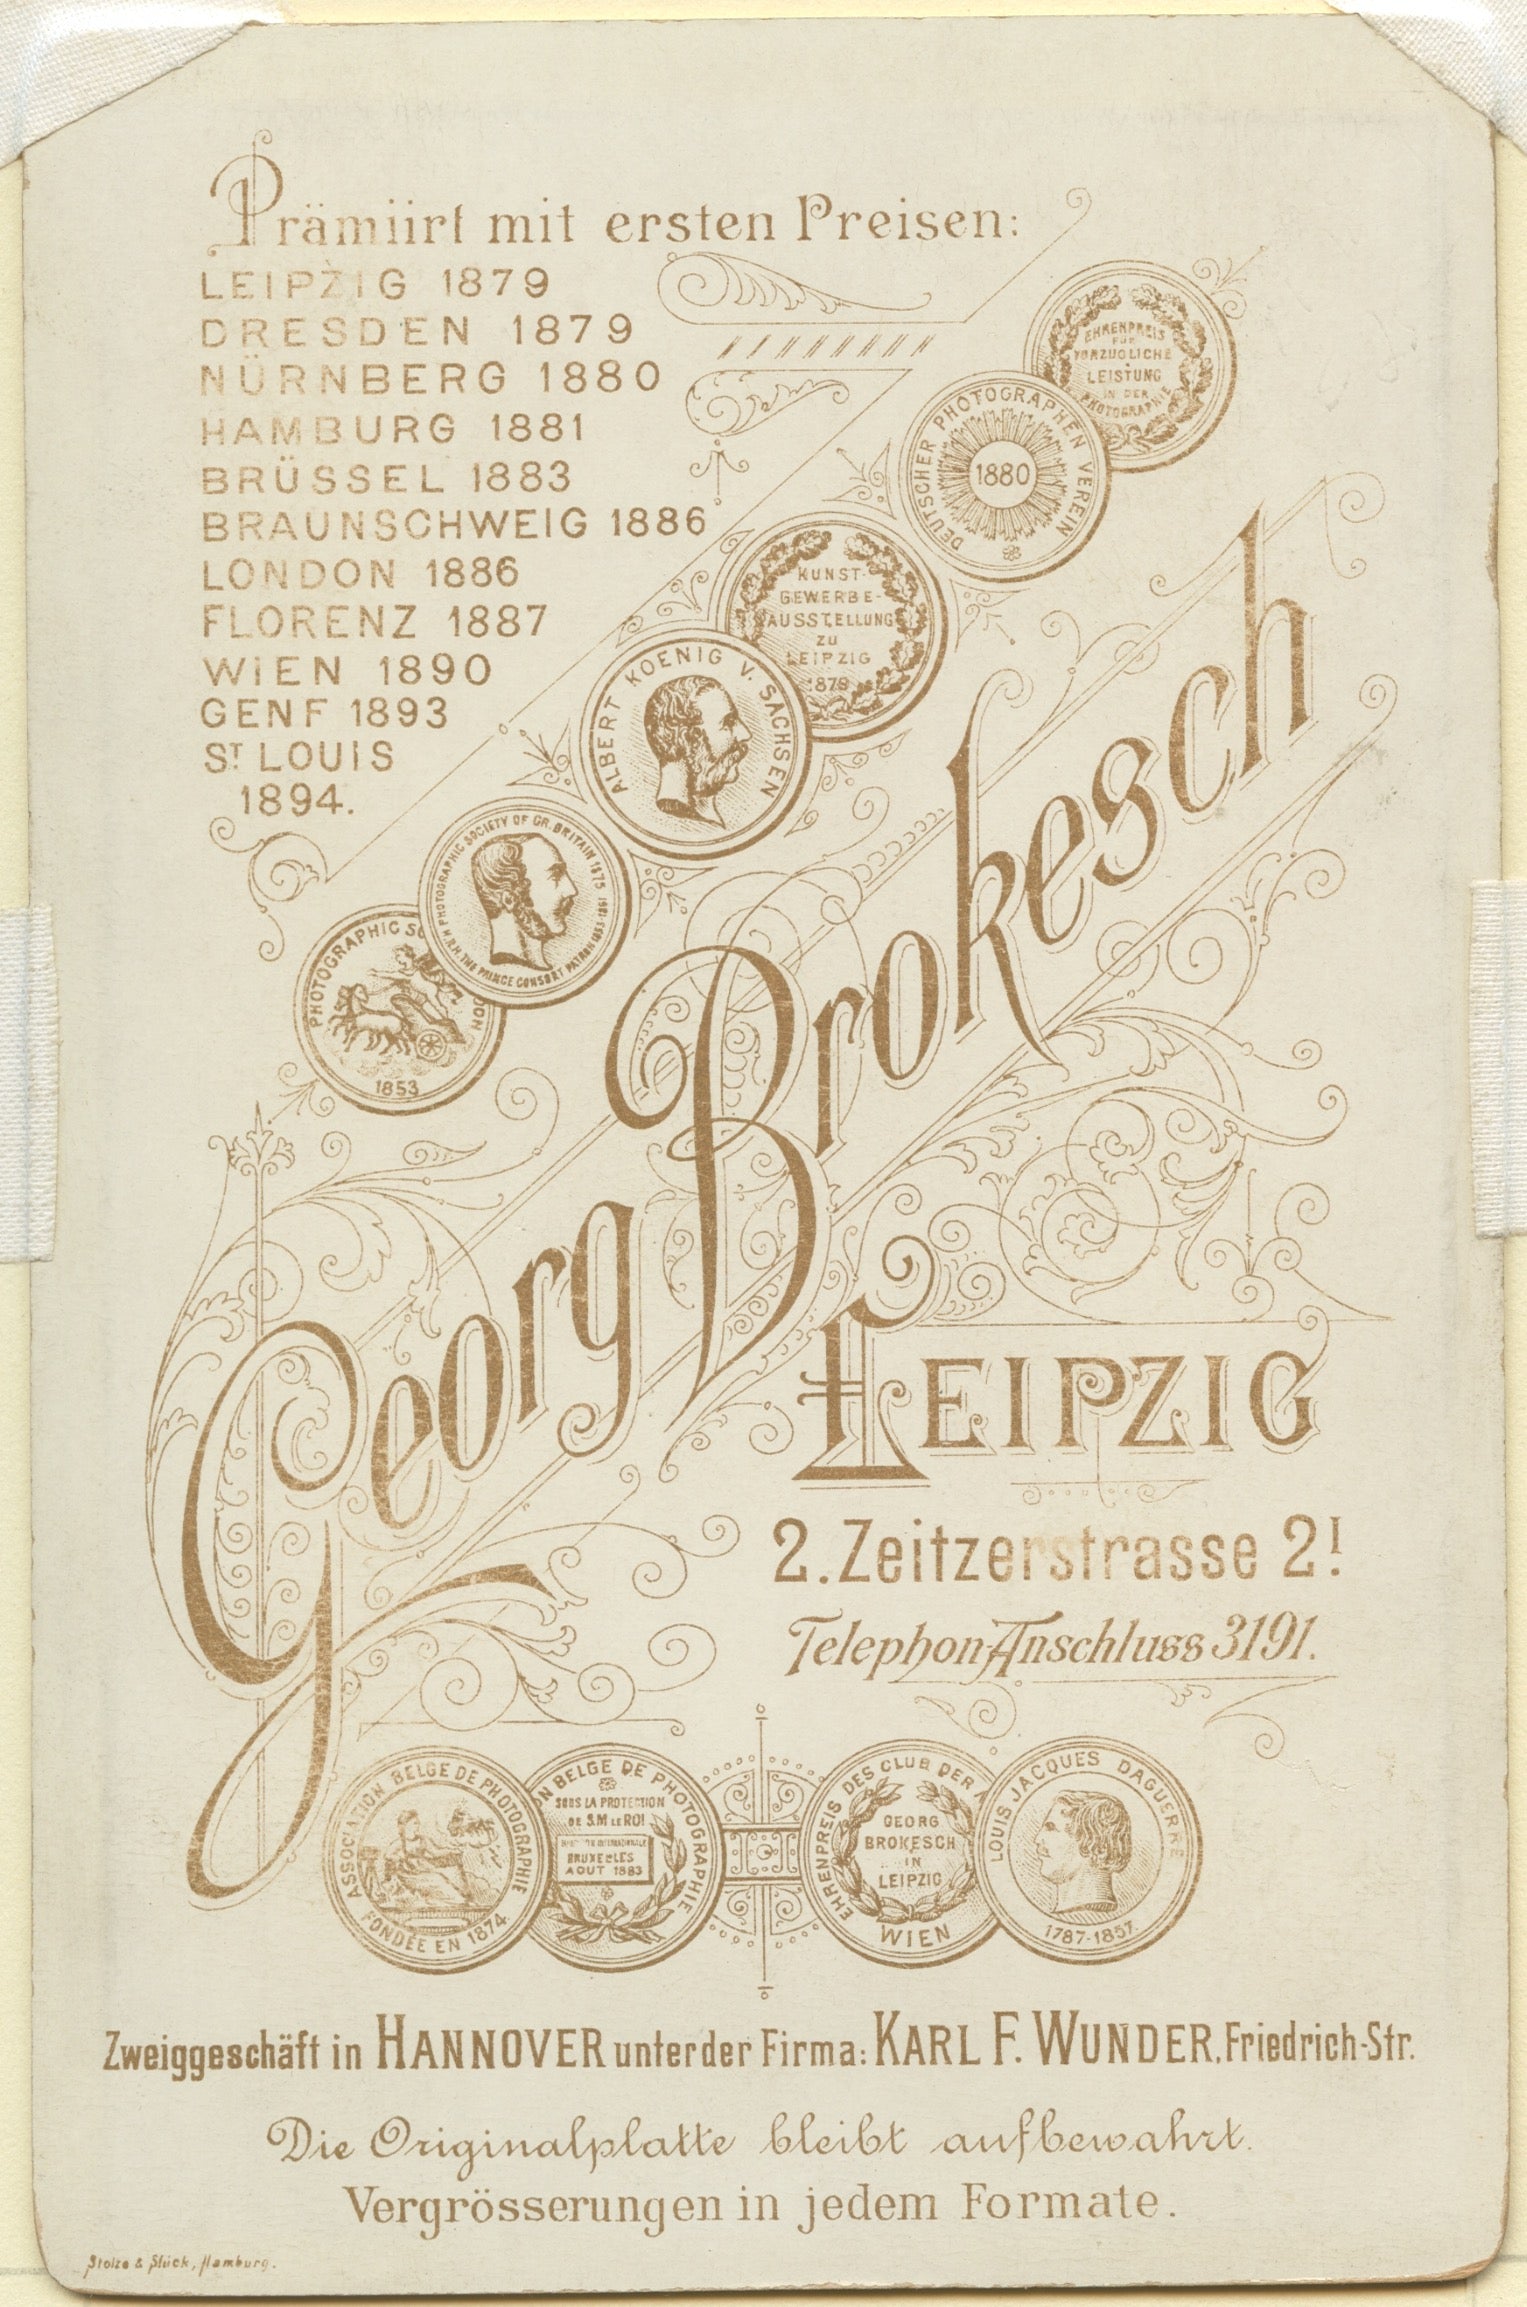 Prämiirt mit ersten Preisen:
LEIPZIG 1879
DRESDEN 1879
NÜRNBERG 1880
HAMBURG 1881
BRÜSSEL 1883
BRAUNSCHWEIG 1886
LONDON 1886
FLORENZ 1887
WIEN 1890
GENF 1893
ST LOUIS
1894.
EHRENPREIS
FÜR
VORZÜGLICHE
LEISTUNG
IN DER
PHOTOGRAPHIE
DEUTSCHER PHOTOGRAPHEN VEREIN
1880
KUNST-
GEWERBE-
AUSSTELLUNG
ZU
LEIPZIG
1879
ALBERT KOENIG V. SACHSEN
PHOTOGRAPHIC SOCIETY OF GR. BRITAIN 1875
H.R.H. THE PRINCE CONSORT PATRON 1853-1861
PHOTOGRAPHIC SO
DON
1853
Georg Brokesch
LEIPZIG
2. Zeitzerstrasse 2I.
Telephon-Anschluss 3191.
ASSOCIATION BELGE DE PHOTOGRAPHIE
FONDÉE EN 1874
ON BELGE DE PHOTOGRAPHIE
SOUS LA PROTECTION
DE S.M LE ROI
BRUXELLES
AOUT 1883
EHRENPREIS DES CLUB DER A
GEORG
BROKESCH
IN
LEIPZIG
WIEN
LOUIS JACQUES DAGUERRE
1787-1857
Zweiggeschäft in HANNOVER unter der Firma: KARL F. WUNDER, Friedrich-Str.
Die Originalplatte bleibt aufbewahrt.
Vergrösserungen in jedem Formate.
Stolze & Stück, Hamburg.